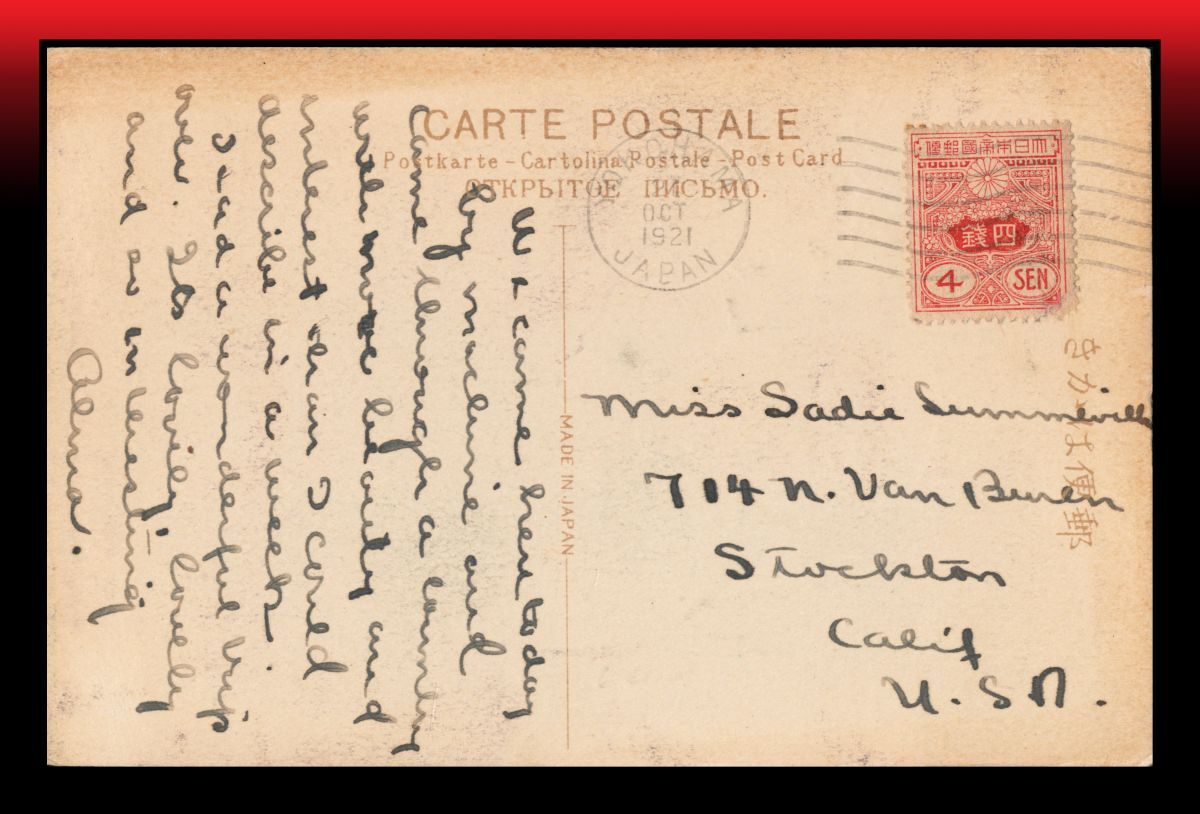 CARTE POSTALE
Postkarte - Cartolina Postale - Post Card
ОТКРЫТОЕ ПИСЬМО.
YOKOHAMA
OCT
1921
JAPAN
大日本帝國郵便
四錢
4 SEN
郵便はかき
MADE IN JAPAN
We came here today
by machine and
came through a country
with more beauty and
interest than I could
describe in a week.
Had a wonderful trip
over. Its lovely, lovely
and so interesting
Alma.
Miss Sadie Summeville
714 N. Van Buren
Stockton
Calif
U.S.A.